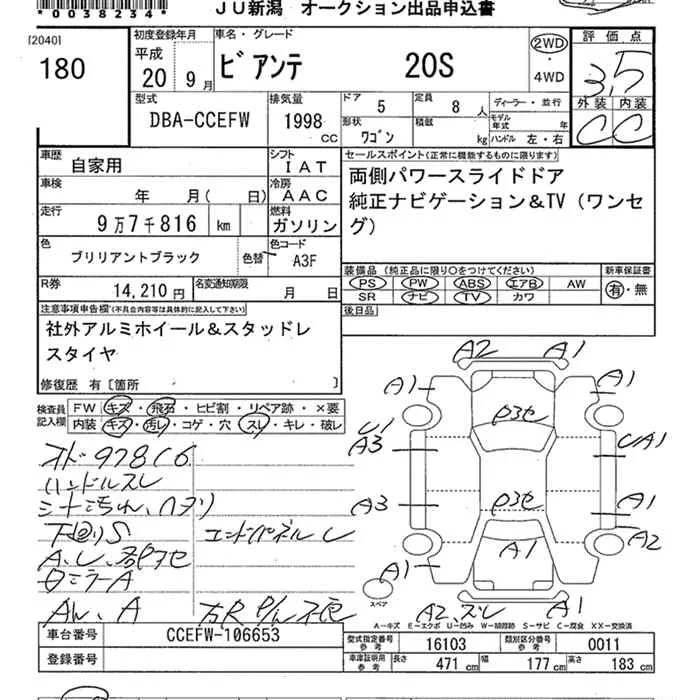 *0038234*
JU新潟 オークション出品申込書
[2040]
180
初度登録年月
平成
20年9月
車名・グレード
ビアンテ 20S
2WD
・
4WD
評価点
3.5
外装 内装
C C
型式
DBA-CCEFW
排気量
1998
CC
ドア
5
定員
8人
ディーラー・並行
形状
ワゴン
積載
kg
モデル年式 年
ハンドル 左・右
車歴
自家用
シフト
IAT
車検
年 月( 日)
冷房
AAC
走行
9万7千816 km
燃料
ガソリン
色
ブリリアントブラック
色替
色コード
A3F
R券
14,210円
名変通知期限
月 日
セールスポイント(正常に機能するものに限ります)
両側パワースライドドア
純正ナビゲーション&TV(ワンセ
グ)
装備品(純正品に限り○をつけてください)
PS PW ABS エアB AW
SR ナビ TV カワ
新車保証書
有・無
後日品
注意事項申告欄(不具合内容等は具体的に記入して下さい)
社外アルミホイール&スタッドレ
スタイヤ
修復歴 有〔箇所 〕
検査員
記入欄
FW キズ・飛石・ヒビ割・リペア跡・×要
内装 キズ・汚レ・コゲ・穴・スレ・キレ・破レ
オド97816
ハンドルスレ
シート汚れ、ヘタリ
下回りS
エンドパネルU
ミラーA
AW、A
A2
A1
A1
A1
A3
A1
A3
A1
A2
A1
A1
A2
A1
スペア
A-キズ E-エクボ U-凹み W-補修跡 S-サビ C-腐食 XX-交換済
車台番号
CCEFW-106653
登録番号
型式指定番号
参考
16103
類別区分番号
参考
0011
車庫証明用
参考
長さ
471 cm
幅
177 cm
高さ
183 cm